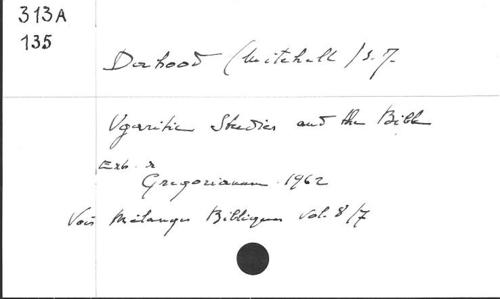 313A
135
Dahood (Mitchell) s.J.
Ugaritic Studies and the Bible
Extr. de
Gregorianum 1962
Voir Mélanges Bibliques vol. 8/7